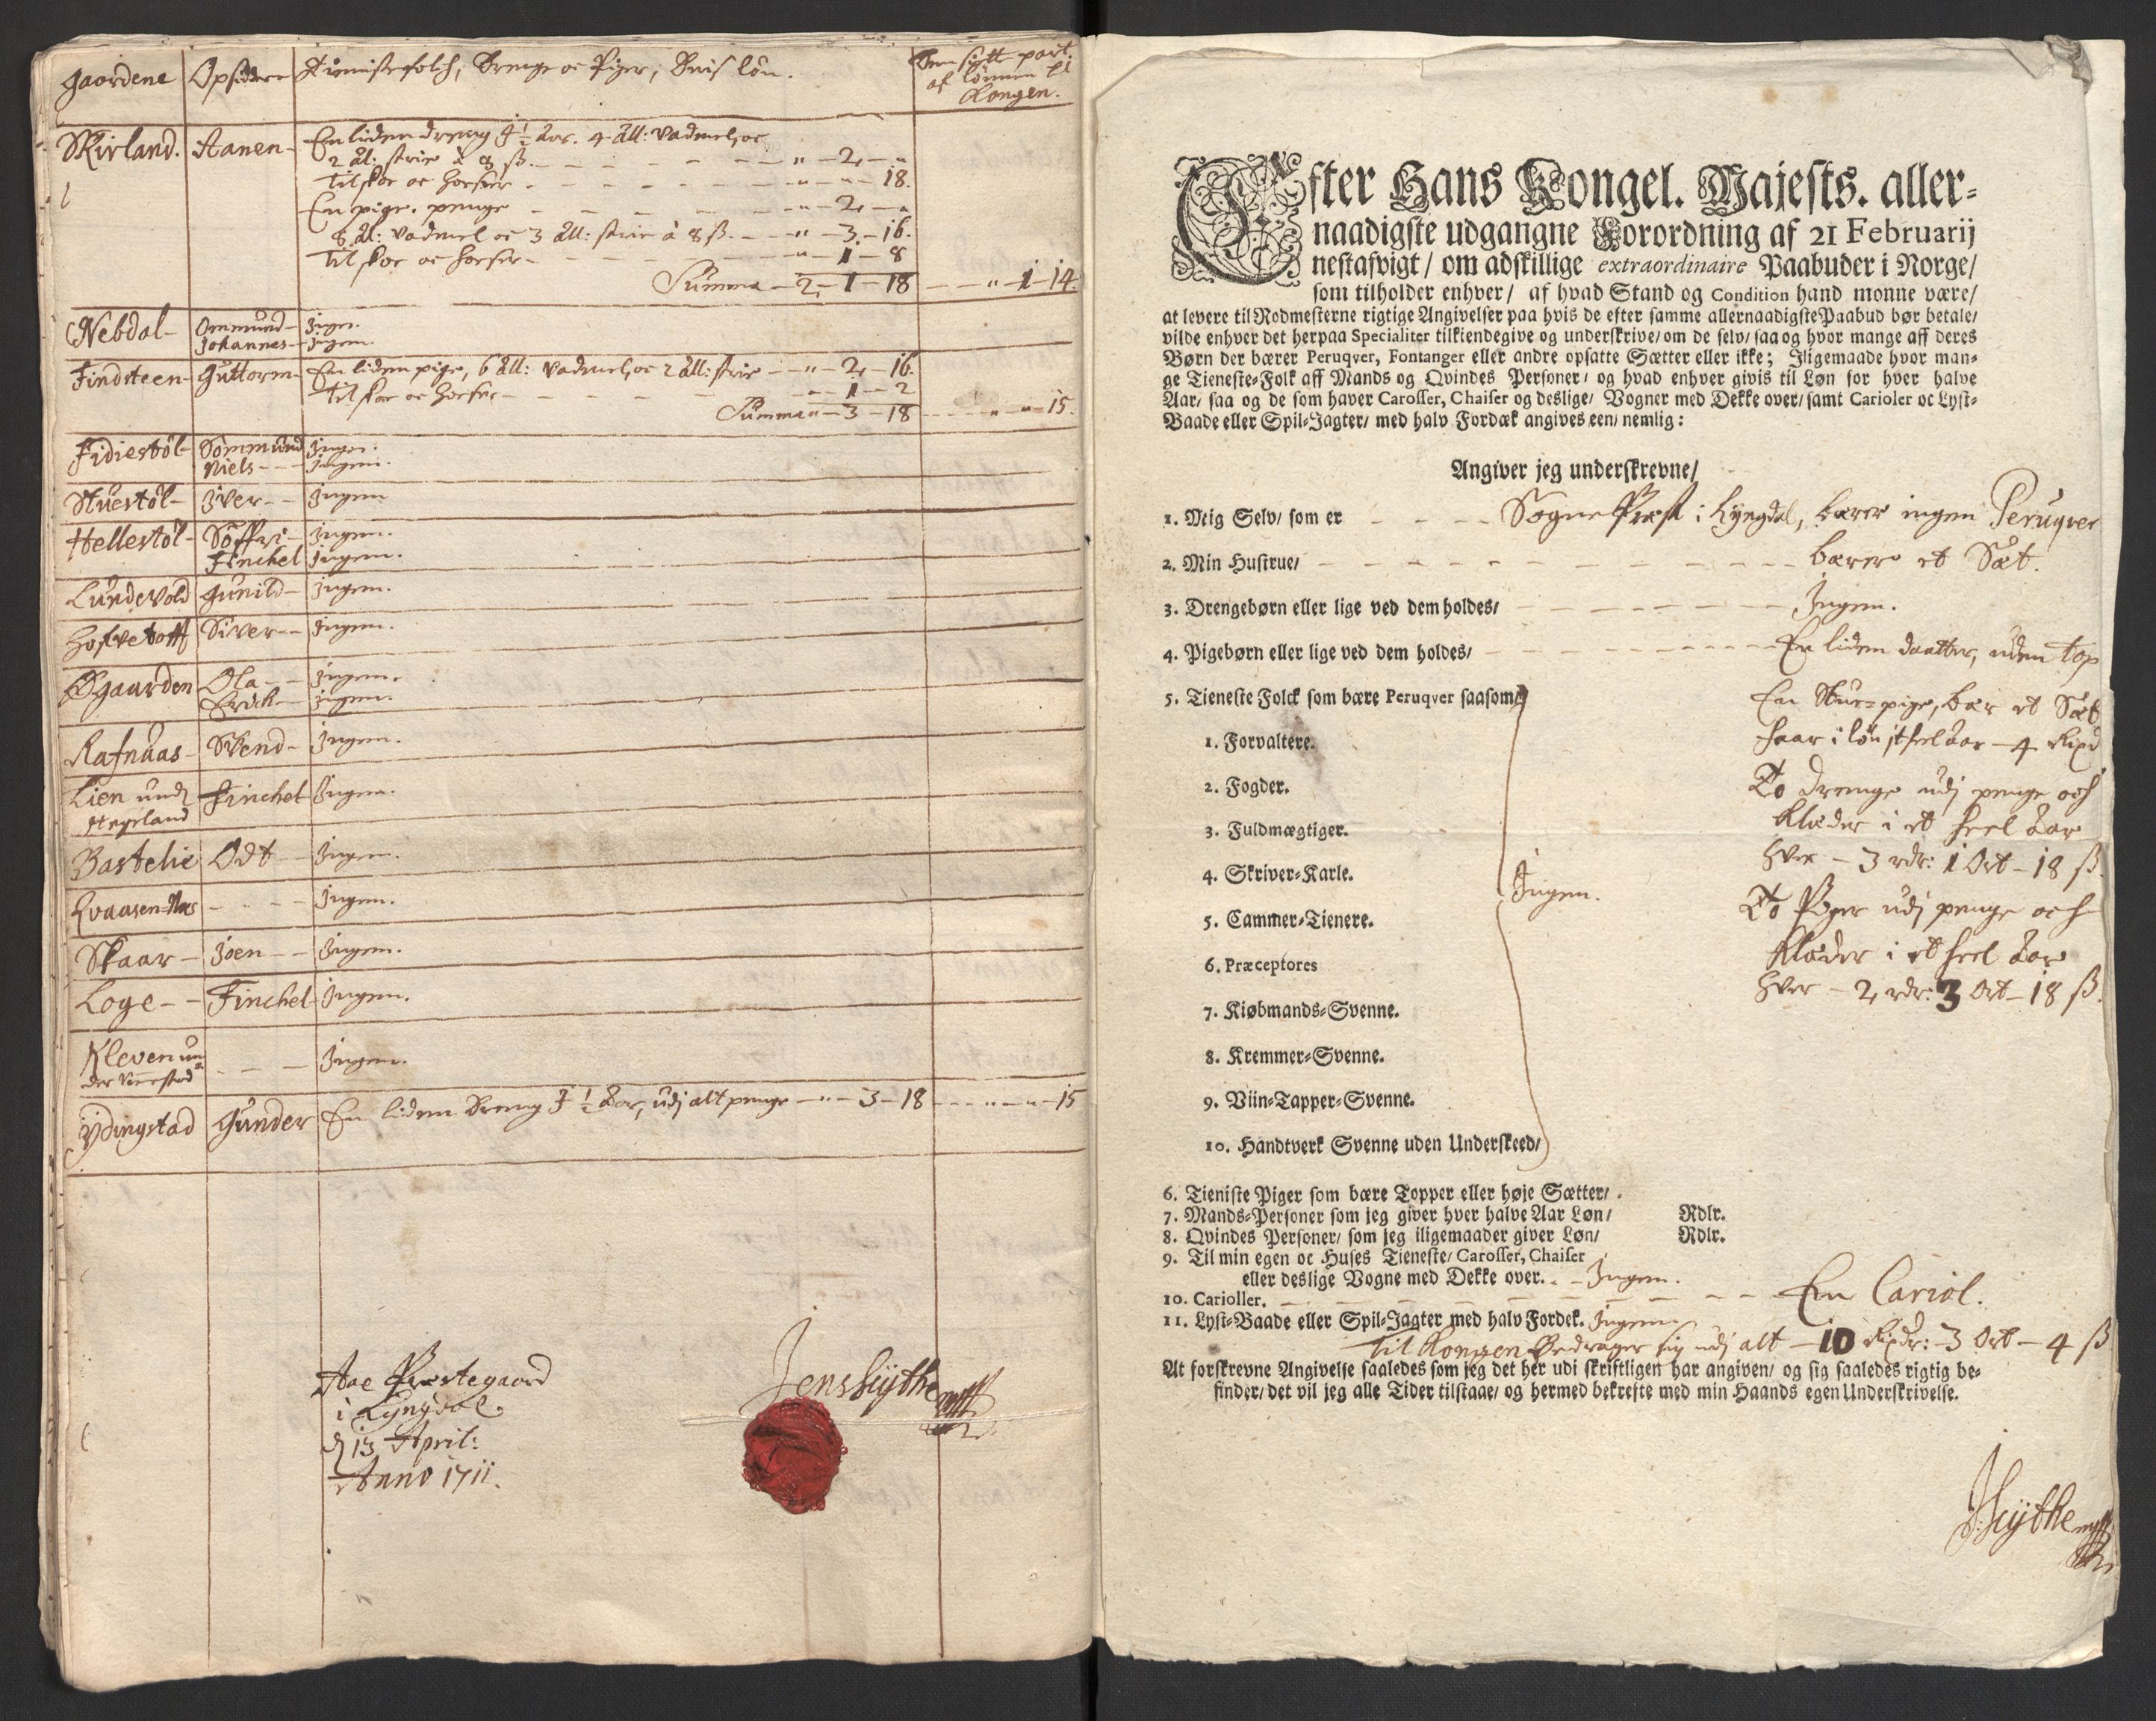 Gaardene Opsidere Tienistefolch, Drenge oc Piger, Deris løn. Den siette part
af lønnen til
Kongen.
Skirland. Aanen- En liden dreng I ½ Aar. 4 All: Vadmel, oc
2 Al: strie à 8 ß. - - - - " - 2 - "
Til skoe oc hoeser - - - - " - " - 18.
En pige. penge - - - - " - 2 - "
8 Al: Vadmel oc 3 All: strie à 8 ß. - - " - 3 - 16.
Til skoe oc hoeser - - - - " - 1 - 8
Summa - 2 - 1 - 18 - - " - 1 - 14.
Nebdal- Ommund- Ingen.
Johannes- Ingen.
Findsteen- Guttorm- En liden pige, 6 All: Vadmel, oc 2 All: strie - " - 2 - 16.
Til skoe oc hoeser - - - - 1 - 2
Summa " - 3 - 18 - - - " - " - 15.
Fidiestøl- Sømmund Ingen.
Niels - - - Ingen.
Stuestøl- Iver - - Ingen
Hellestøl- Søffri- Ingen.
Finchel Ingen.
Lundevold Gunild- Ingen.
Siver - - Ingen.
Øgaarden Ola - - Ingen.
Erich - Ingen.
Rafnaas- Svend- Ingen.
Lien und. Finchel Ingen.
Hægeland
Bastelie Odt - Ingen.
Qvaasen-Næs - - - - Ingen.
Skaar - Joen - - Ingen.
Loge - - Finchel- Ingen.
Kleven un- - - - Ingen.
der
Ydingstad Gunder En liden Dreng I ½ Aar, udj alt penge - " - 3 - 18 - - - " - " - 15
Aae Præstegaard
i Lyngdal.
d 13 April:
Anno 1711.
Jens Lÿthe
mpp
Efter Hans Kongel. Majests. aller-
naadigste udgangne Forordning af 21 Februarij
nestafvigt / om adskillige extraordinaire Paabuder i Norge/
som tilholder enhver / af hvad Stand og Condition hand monne være/
at levere til Rodmesterne rigtige Angivelser paa hvis de efter samme allernaadigste Paabud bør betale/
vilde enhver det herpaa Specialiter tilkiendegive og underskrive/ om de selv/ saa og hvor mange aff deres
Børn der bærer Peruqver, Fontanger eller andre opsatte Sætter eller ikke; Iligemaade hvor man-
ge Tieneste-Folk aff Mands og Qvindes Personer/ og hvad enhver givis til Løn for hver halve
Aar/ saa og de som haver Carosser, Chaiser og deslige/ Vogner med Dekke over/ samt Carioler oc Lyst-
Baade eller Spil-Jagter/ med halv Fordæk angives een/ nemlig:
Angiver jeg underskrevne/
1. Mig Selv/ som er - - - Sogne Præst i Lyngdal, bærer ingen Peruqver
2. Min Hustrue/ - - - - bærer et Sæt.
3. Drengebørn eller lige ved dem holdes/ - - - - Ingen.
4. Pigebørn eller lige ved dem holdes/ - - - - En liden daatter, uden top
5. Tieneste Folck som bære Peruqver saasom/ En Stue-pige, bær et Sæt
haar i løn it heel Aar - 4 Rixd
1. Forvaltere.
2. Fogder. To drenge udj penge och
3. Fuldmægtiger. Klæder i et heel Aar
4. Skriver-Karle. Hver - 3 rdr: 1 Ort - 18 ß.
Ingen.
5. Cammer-Tienere. To Piger udj penge och
6. Præceptores Klæder i et heel Aar
7. Kiøbmands-Svenne. Hver - 2 rdr: 3 Ort - 18 ß.
8. Kremmer-Svenne.
9. Viin-Tapper-Svenne.
10. Handtverk Svenne uden Underskeed/
6. Tieniste Piger som bære Topper eller høje Sætter/ .
7. Mands-Personer som jeg giver hver halve Aar Løn/ Rdlr.
8. Qvindes Personer/ som jeg iligemaader giver Løn/ Rdlr.
9. Til min egen oc Huses Tieneste/ Carosser, Chaiser
eller deslige Vogne med Dekke over. - - Ingen.
10. Carioller. - - - - En Cariol.
11. Lyst-Baade eller Spil-Jagter med halv Fordek. Ingen.
Til Kongen bedrager sig udj alt - 10 Rixdr: 3 Ort - 4 ß
At forskrevne Angivelse saaledes som jeg det her udi skriftligen har angiven/ og sig saaledes rigtig be-
finder/ det vil jeg alle Tider tilstaae/ og hermed bekrefte med min Haands egen Underskrivelse.
J Lÿthe mpp